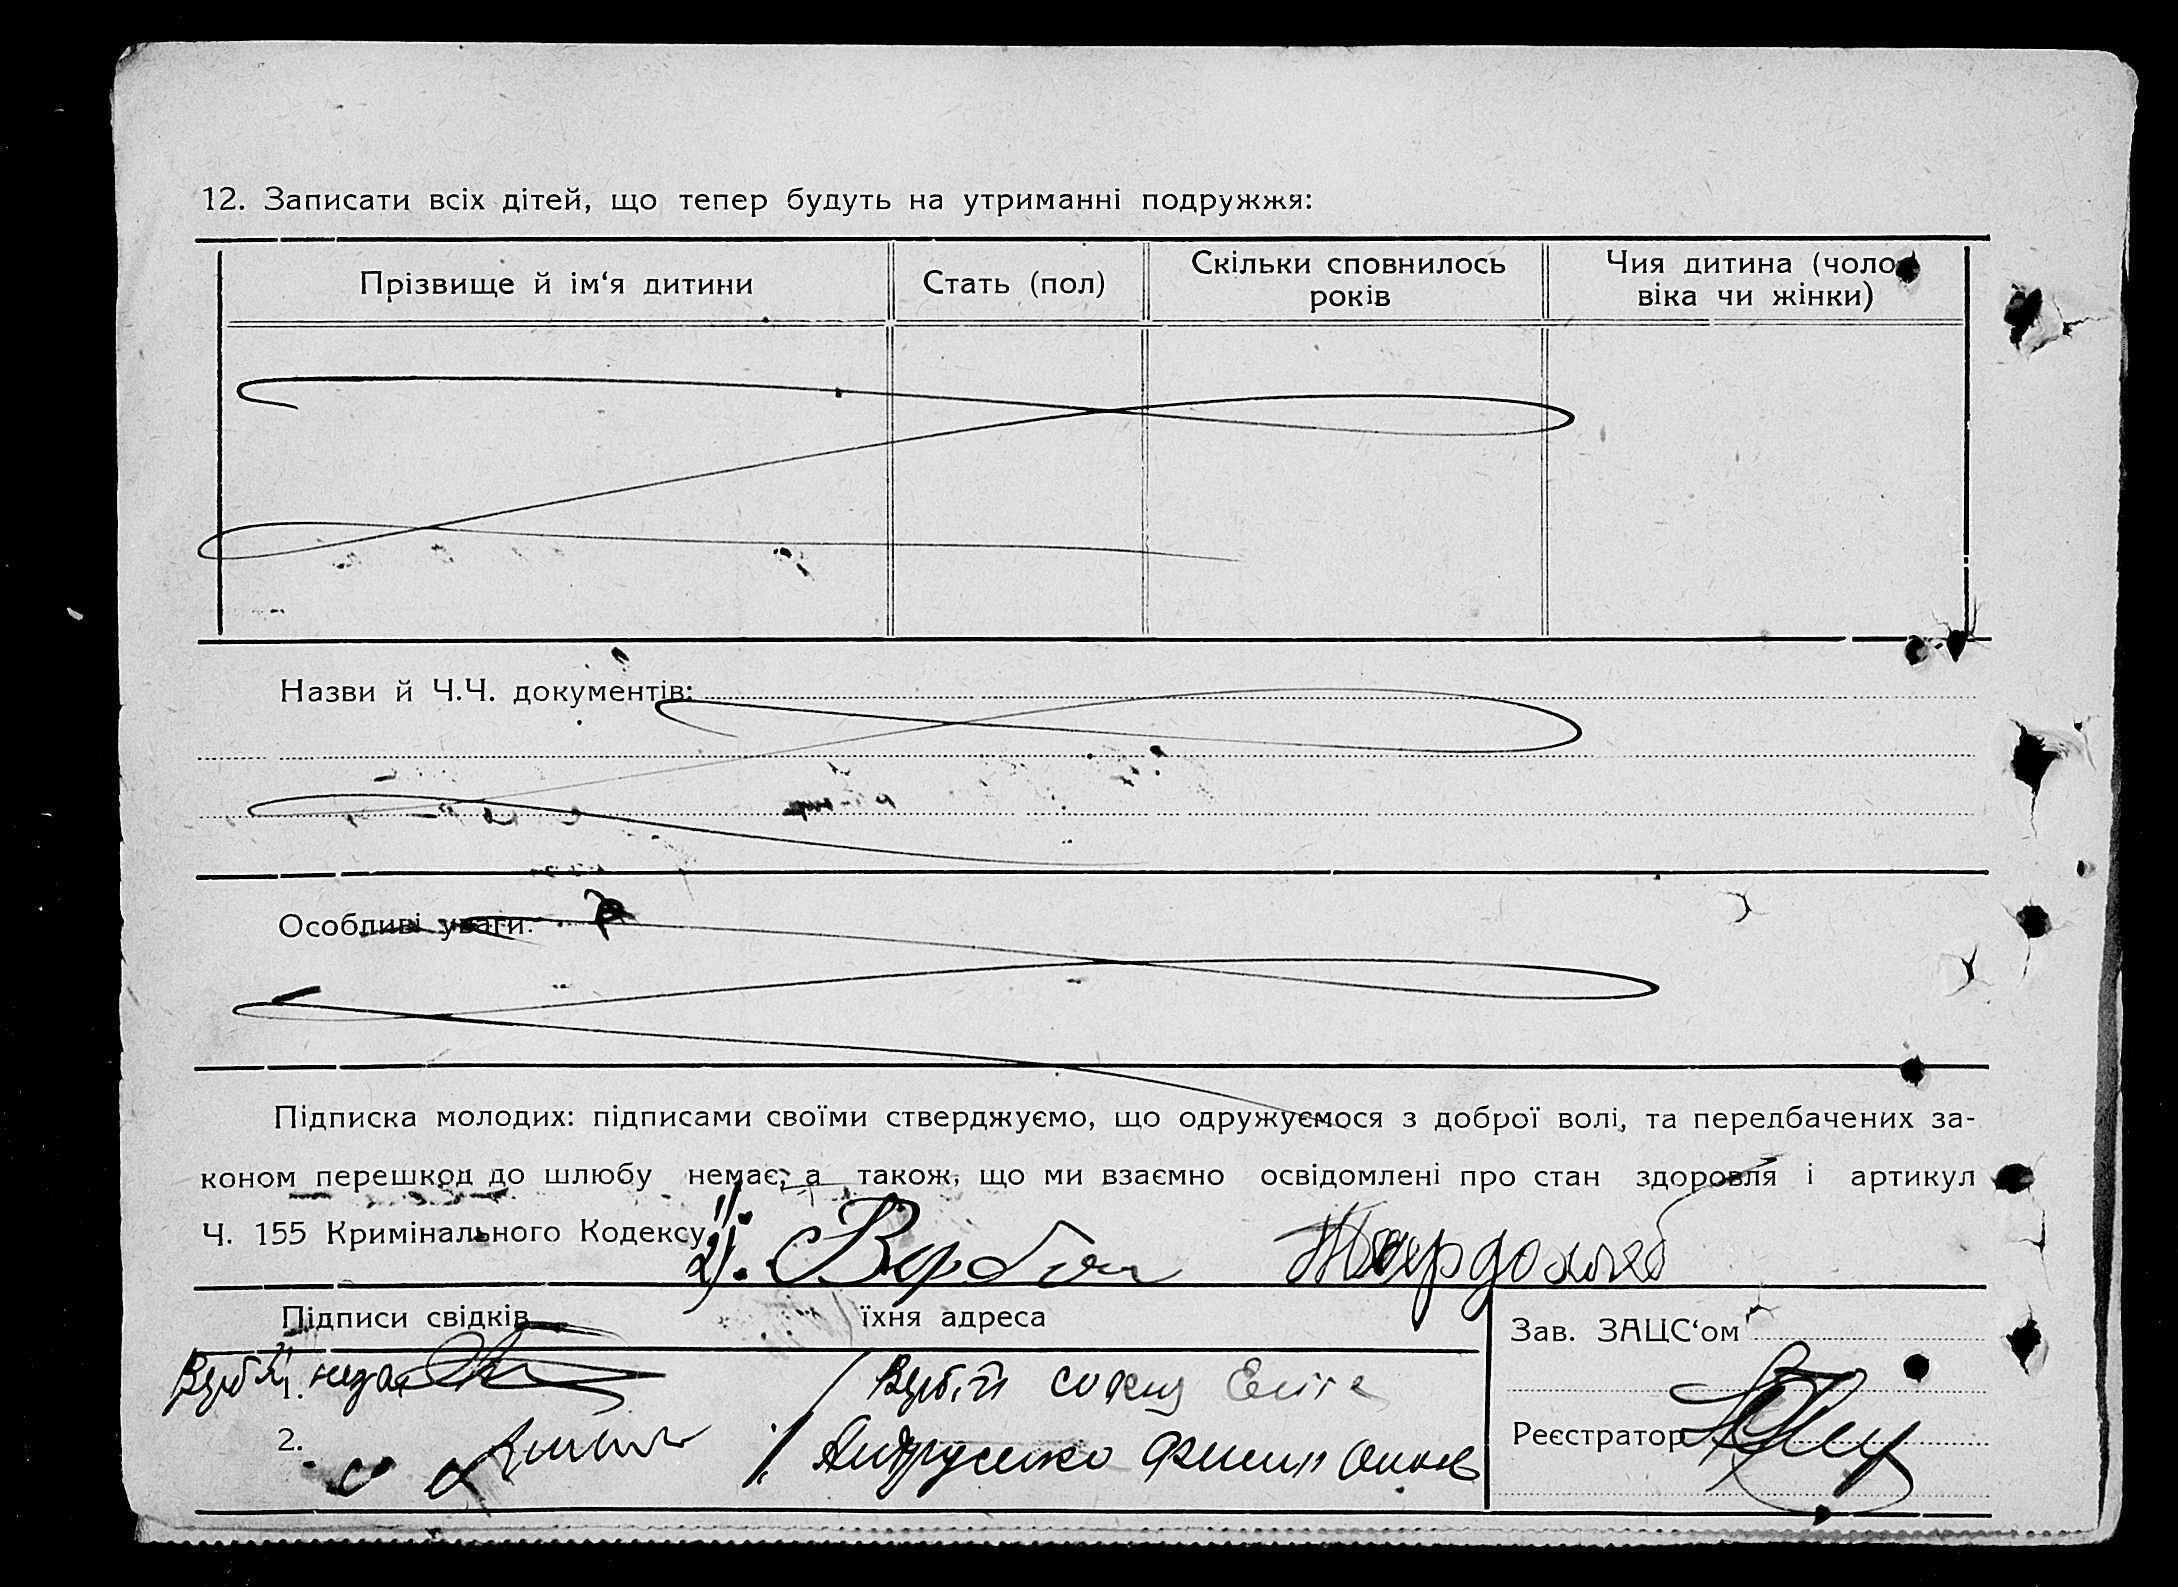 12. Записати всіх дітей, що тепер будуть на утриманні подружжя:
Прізвище й ім‘я дитини
Стать (пол)
Скільки сповнилось
років
Чия дитина (чоло-
віка чи жінки)
Назви й Ч.Ч. документів:
Особливі уваги:
Підписка молодих: підписами своїми стверджуємо, що одружуємося з доброї волі, та передбачених за-
коном перешкод до шлюбу немає, а також, що ми взаємно освідомлені про стан здоровля і артикул
Ч. 155 Кримінального Кодексу
1)
2). Вербой
Підписи свідків
їхня адреса
Зав. ЗАЦС‘ом
1.
Вербій
2.
Андрусенко Филип
Реєстратор